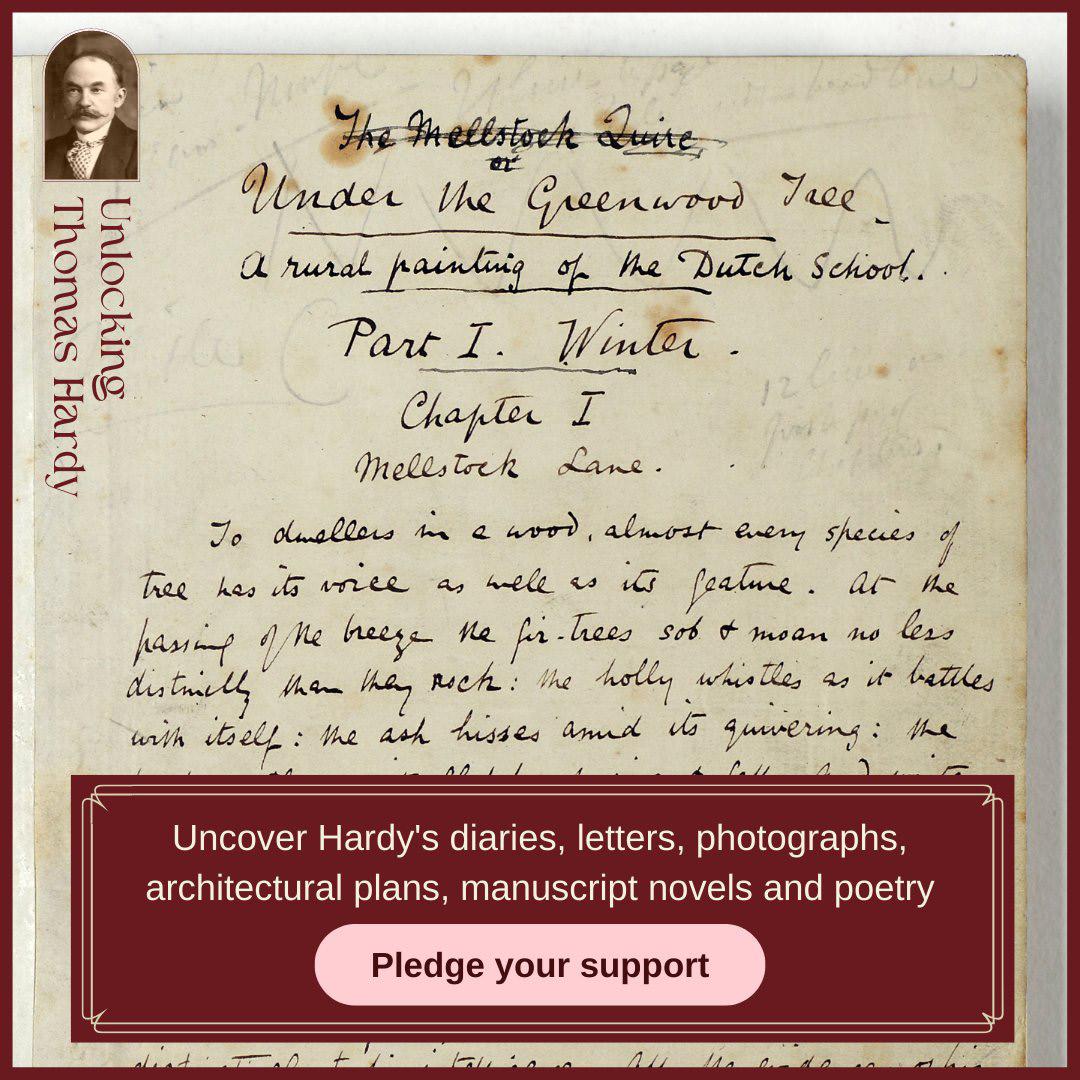 Unlocking
Thomas Hardy
The Mellstock Quire
or
Under the Greenwood Tree
A rural painting of the Dutch School.
Part I. Winter.
Chapter I
Mellstock Lane.
To dwellers in a wood, almost every species of
tree has its voice as well as its feature. At the
passing of the breeze the fir-trees sob & moan no less
distinctly than they rock: the holly whistles as it battles
with itself: the ash hisses amid its quivering: the
Uncover Hardy's diaries, letters, photographs,
architectural plans, manuscript novels and poetry
Pledge your support